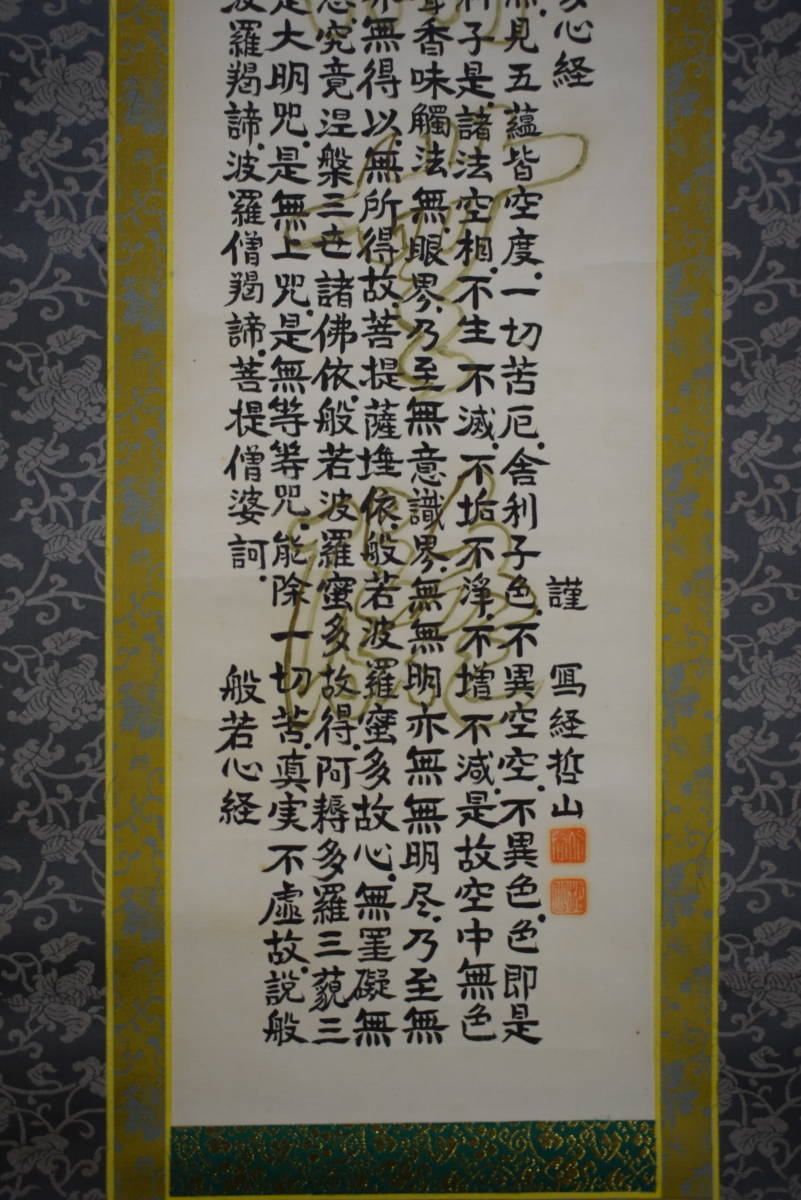 心経 謹 冩経哲山
見五蘊皆空度一切苦厄舎利子色不異空空不異色色即是
利子是諸法空相不生不滅不垢不淨不増不減是故空中無色
香味觸法無眼界乃至無意識界無無明亦無無明尽乃至無
無得以無所得故菩提薩埵依般若波羅蜜多故心無罣礙無
究竟涅槃三世諸佛依般若波羅蜜多故得阿耨多羅三藐三
是大明咒是無上咒是無等等咒能除一切苦真実不虚故説般
波羅羯諦波羅僧羯諦菩提僧婆訶 般若心経